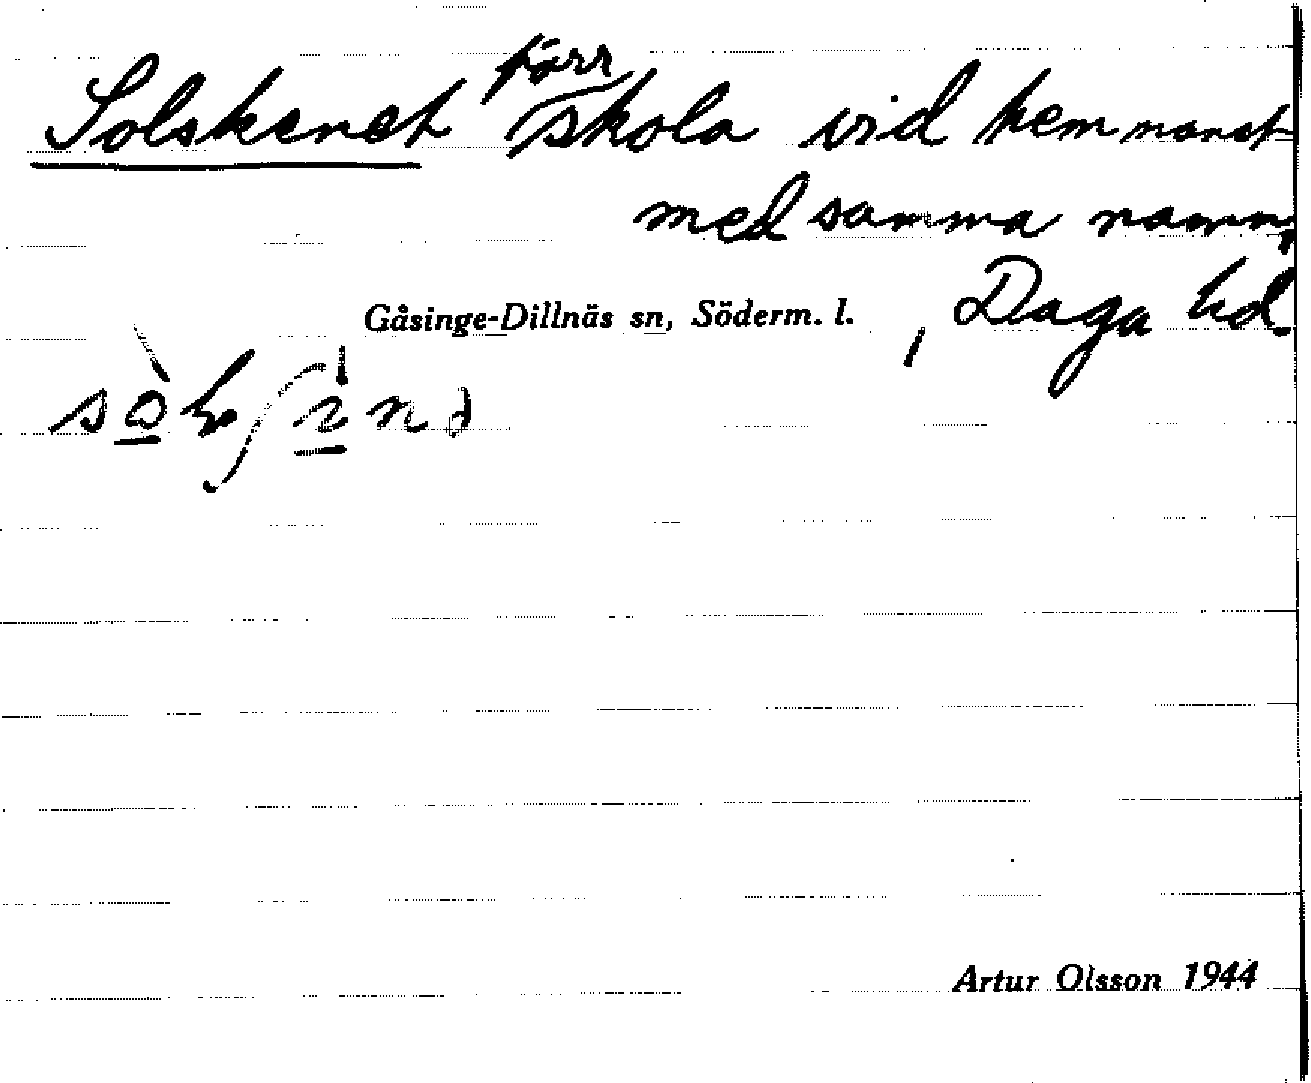 Solskenet förr skola vid hemmanet
med samma namn,
Gåsinge-Dillnäs sn, Söderm. l. , Daga hd
Artur Olsson 1944